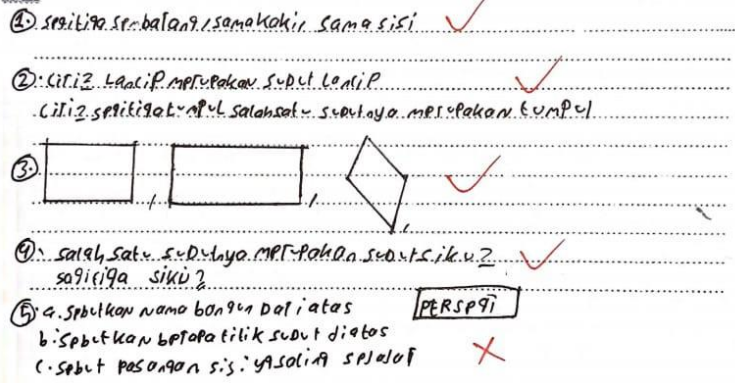 1. segitiga sembarang, samakaki, sama sisi
2. ciri2 Lancip merupakan sudut lancip
. ciri2 segitiga tumpul salah satu sudutnya merupakan tumpul
3. , , ,
4. salah satu sudutnya merupakan sudut siku2
sagitiga siku2
5. a. sebutkan nama bangun Dari atas PERSPGi
b. Sebutkan berapa titik sudut diatas
c. sebut pasangan sisi yg saling sejajar